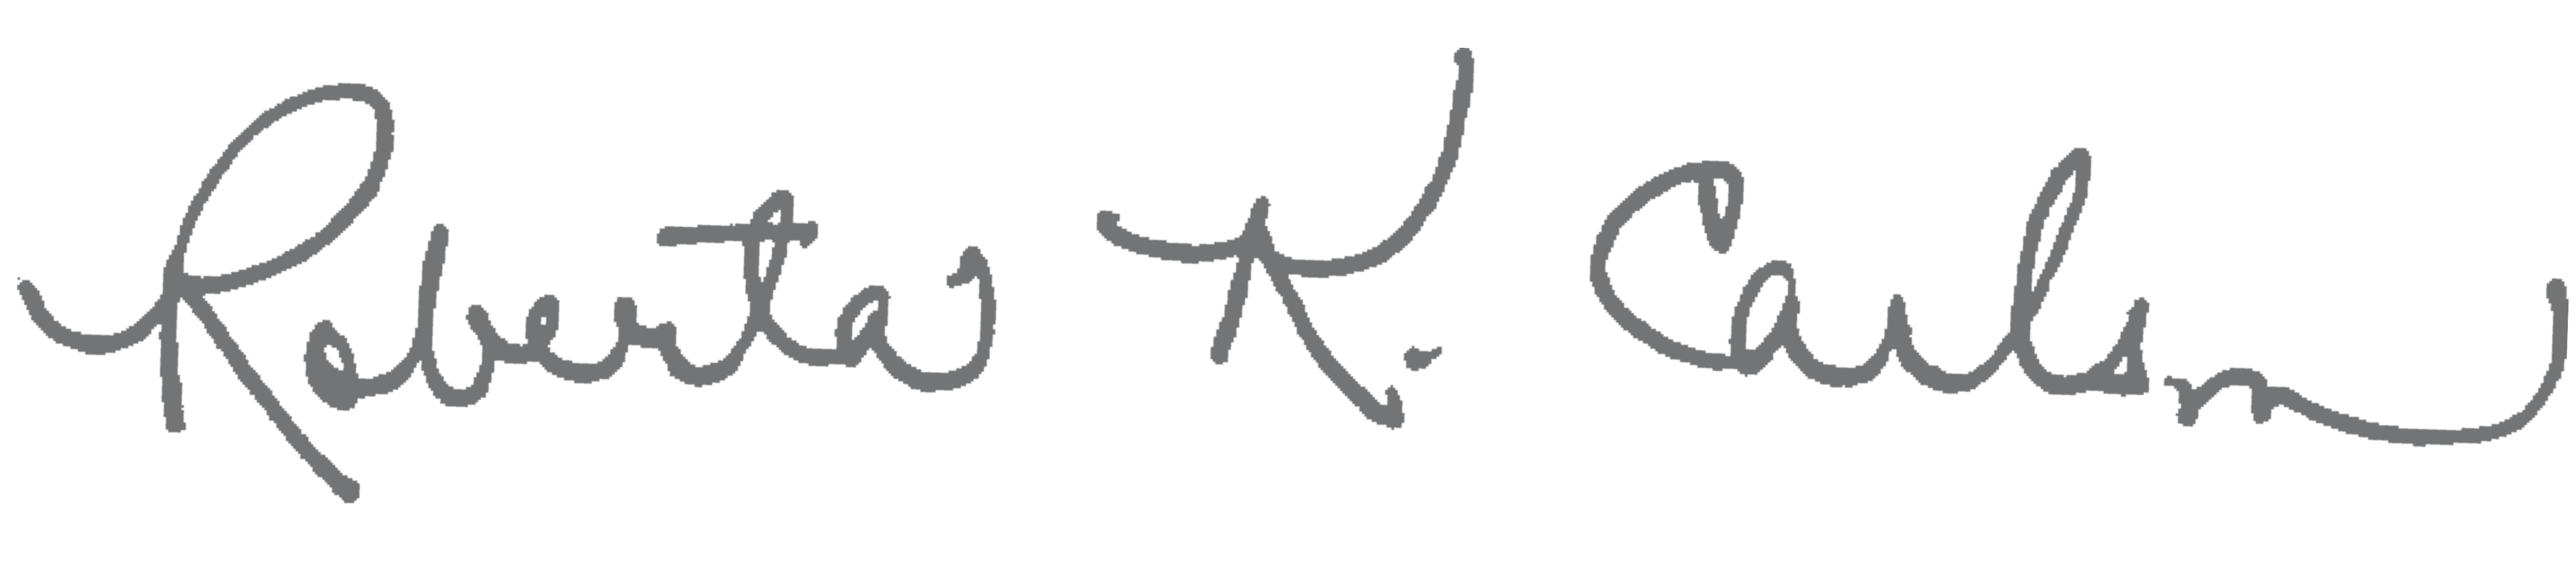 Roberta K. Carlson